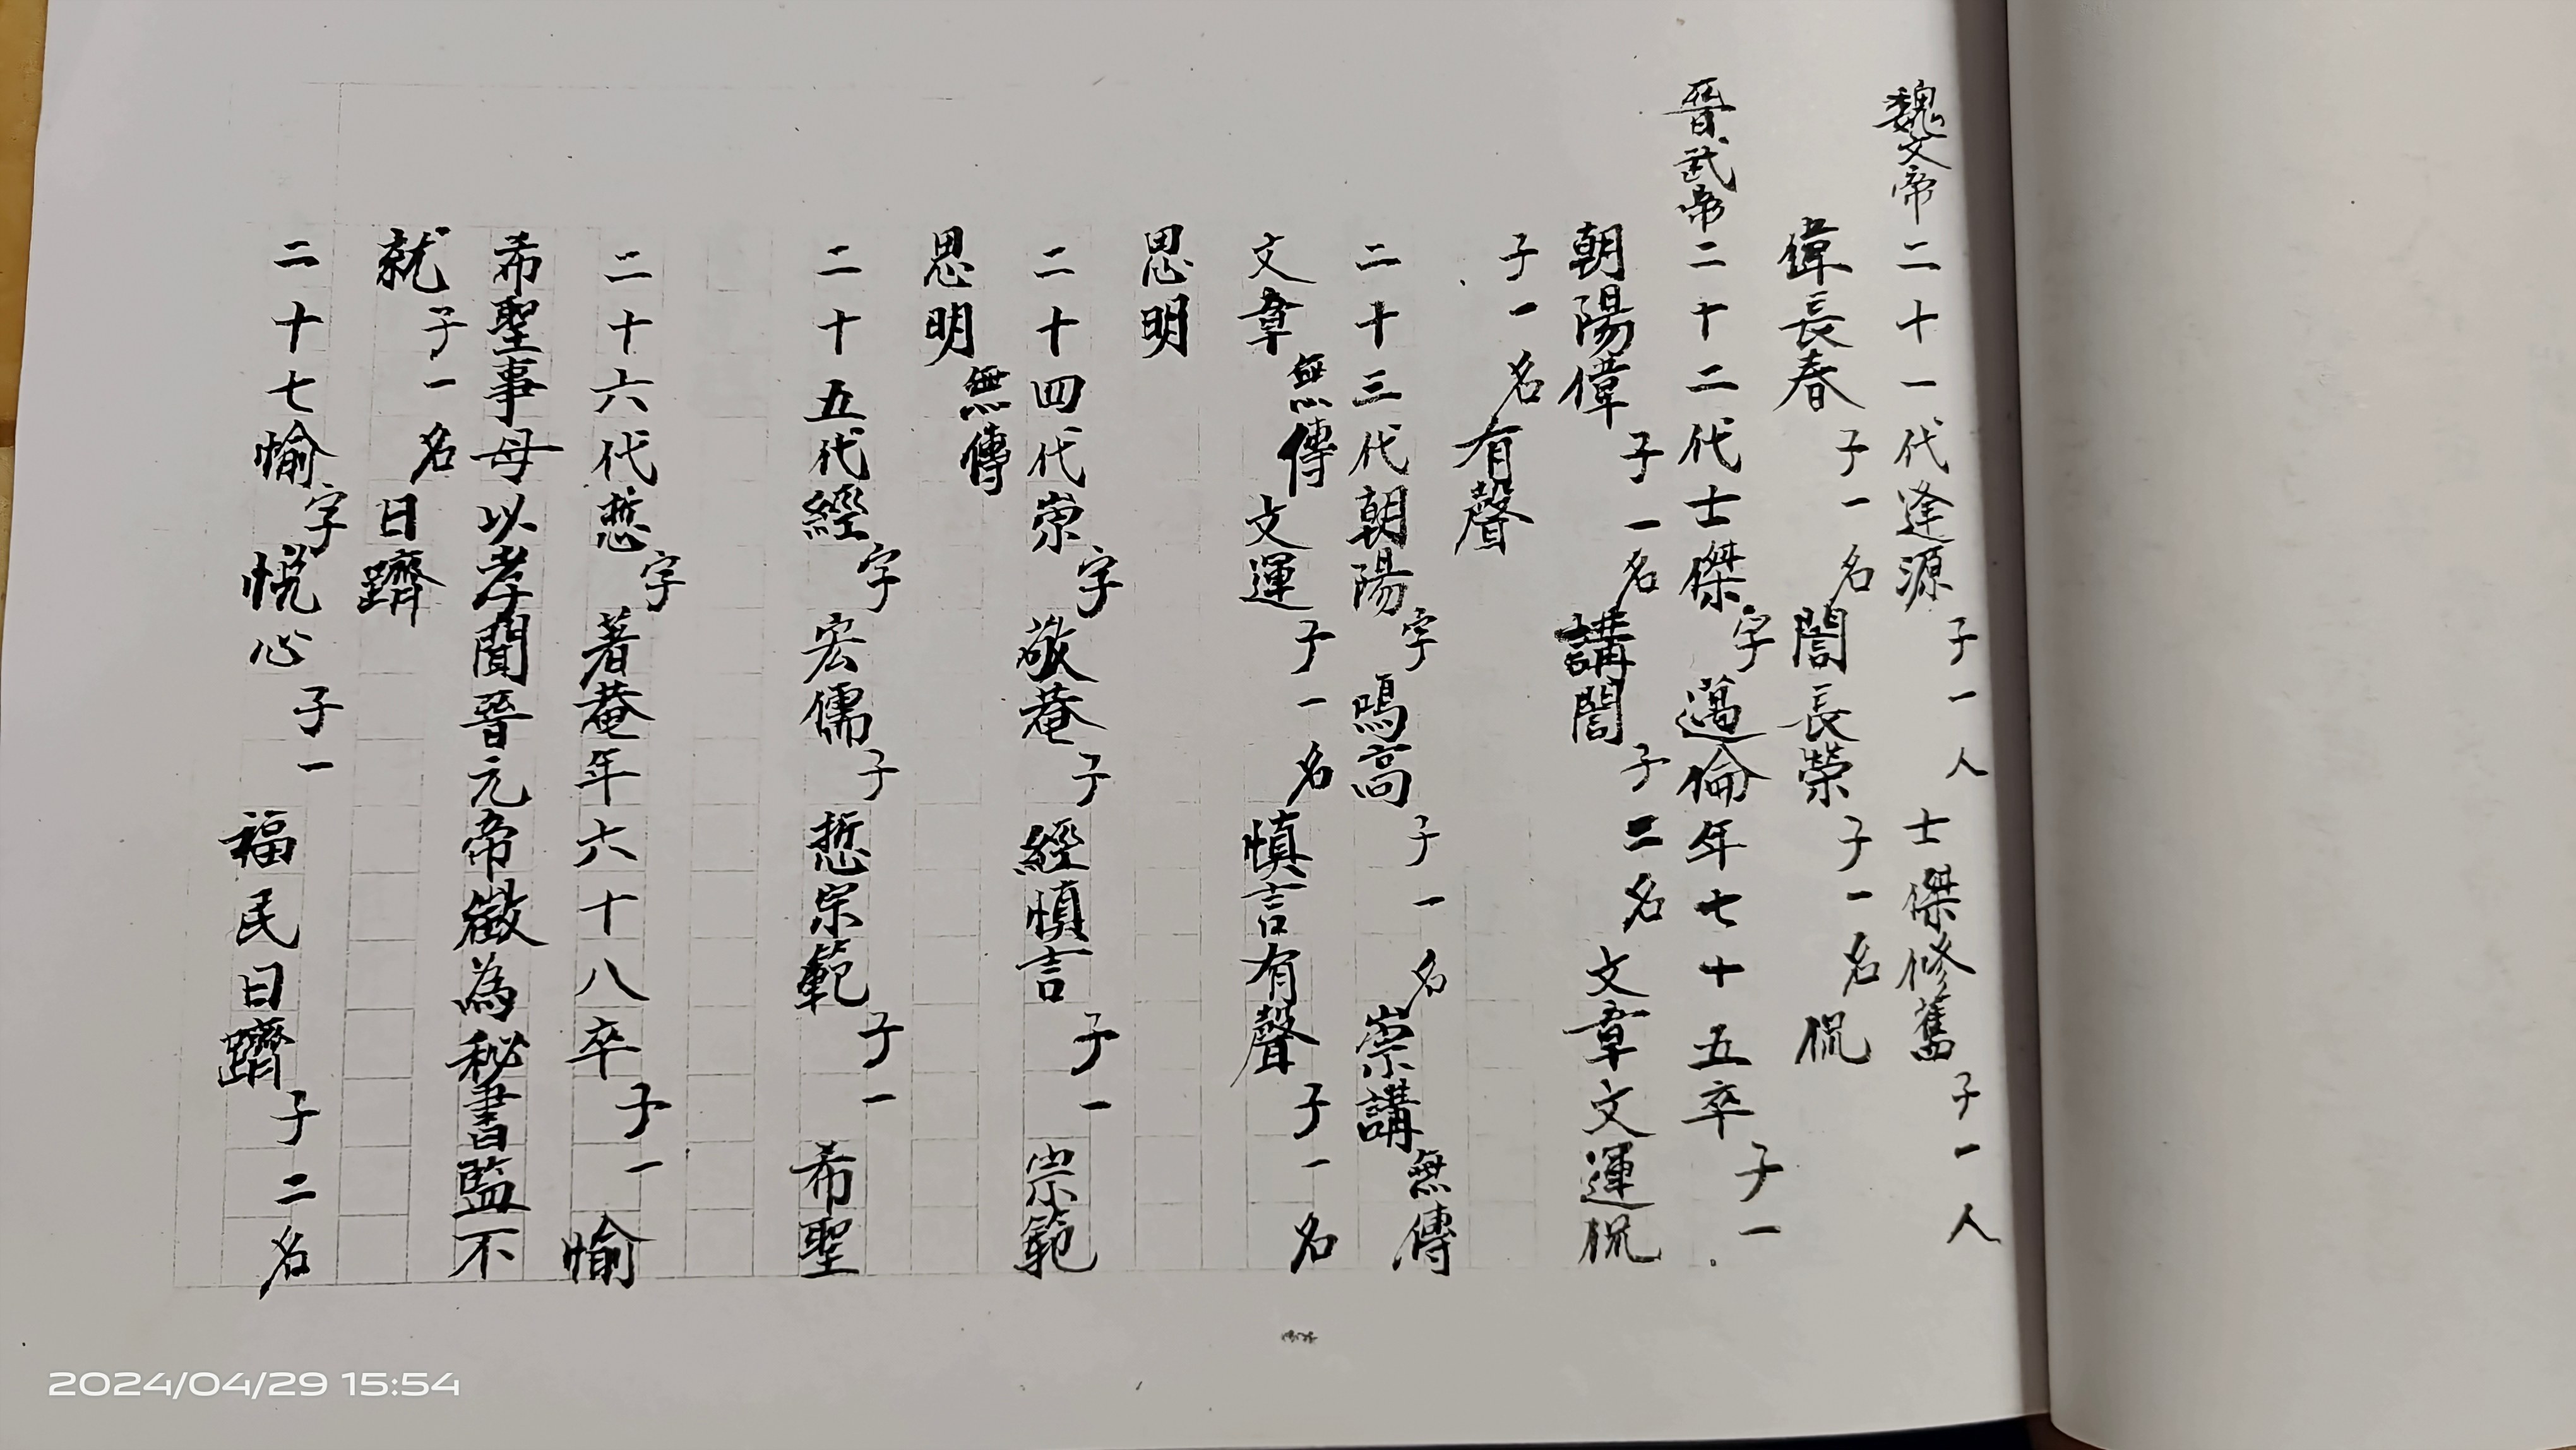 魏文帝二十一代逢源子一人士傑修舊子一人
偉長春子一名誾長榮子一名侃
晉武帝二十二代士傑字邁倫年七十五卒子一
朝陽偉子一名講誾子二名文章文運侃
子一名有聲
二十三代朝陽字鳴高子一名崇講無傳
文章無傳文運子一名慎言有聲子一名
思明
二十四代崇字敬菴子經慎言子一宗範
思明無傳
二十五代經字宏儒子悊宗範子一希聖
二十六代悊字著菴年六十八卒子一愉
希聖事母以孝聞晉元帝徵為秘書監不
就子一名日躋
二十七愉字悅心子一福民日躋子二名
2024/04/29 15:54